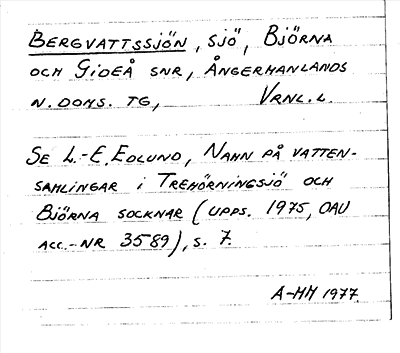 BERGVATTSSJÖN, SJÖ, BJÖRNA
OCH GIDEÅ SNR, ÅNGERMANLANDS
N. DOMS. TG, VRNL. L.
SE L.-E. EDLUND, NAMN PÅ VATTEN-
SAMLINGAR I TREHÖRNINGSJÖ OCH
BJÖRNA SOCKNAR (UPPS. 1975, OAU
ACC.-NR 3589), S. 7.
A-MH 1977.